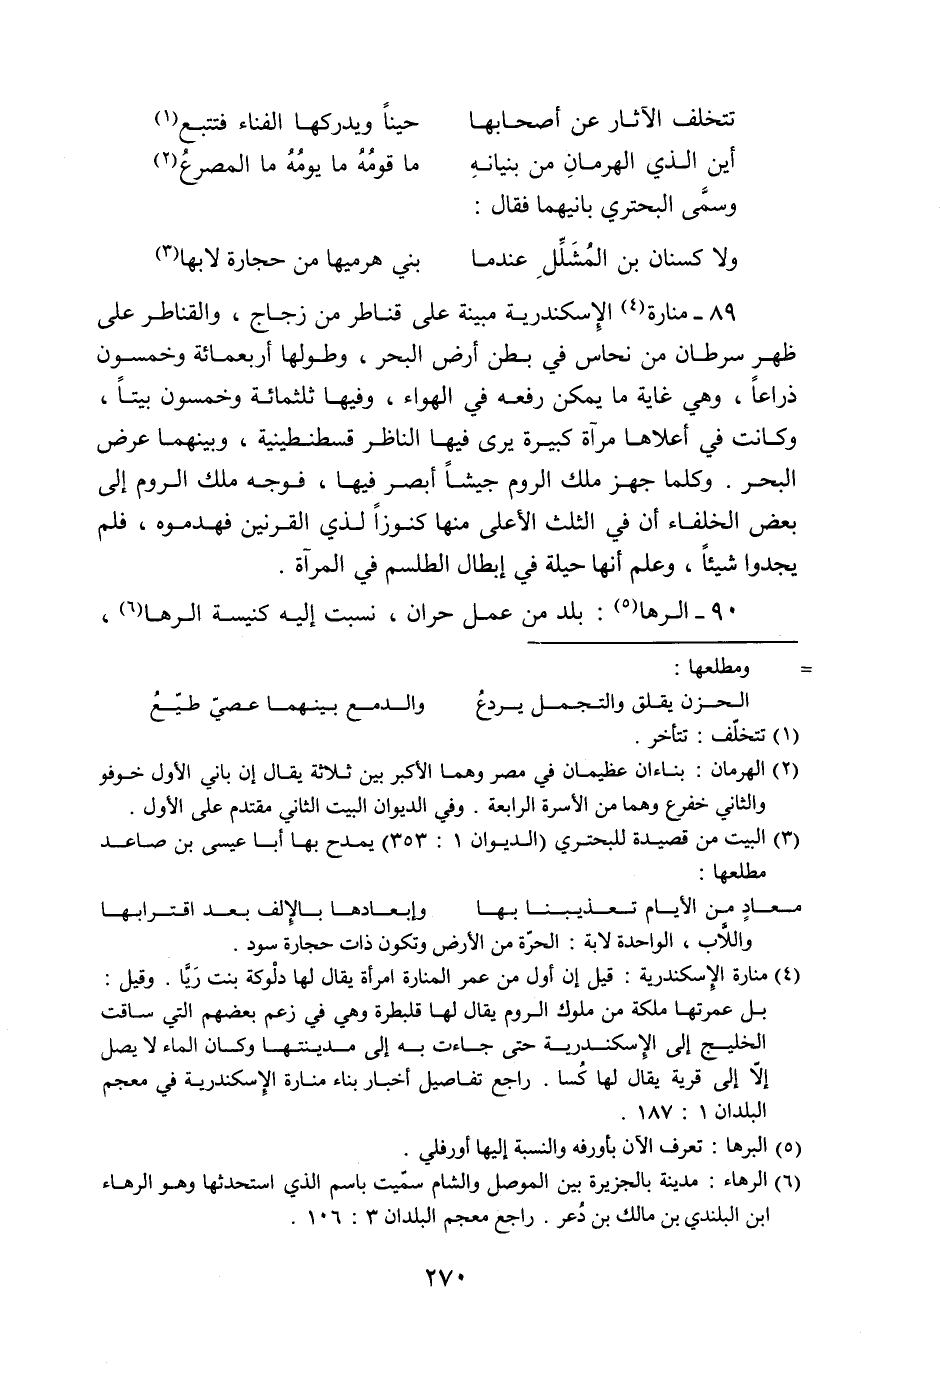 تتخلف الآثار عن أصحابها حيناً ويدركها الفناء فتتبع(١)
أين الذي الهرمانِ من بنيانهِ ما قومُهُ ما يومُهُ ما المصرعُ(٢)
وسمَّى البحتري بانيهما فقال :
ولا كسنان بن المُشَلَّلِ عندما بني هرميها من حجارة لابها(٣)
٨٩ ـ منارة(٤) الإسكندرية مبينة على قناطر من زجاج ، والقناطر على
ظهر سرطان من نحاس في بطن أرض البحر ، وطولها أربعمائة وخمسون
ذراعاً ، وهي غاية ما يمكن رفعه في الهواء ، وفيها ثلثمائة وخمسون بيتاً ،
وكانت في أعلاها مرآة كبيرة يرى فيها الناظر قسطنطينية ، وبينهما عرض
البحر . وكلما جهز ملك الروم جيشاً أبصر فيها ، فوجه ملك الروم إلى
بعض الخلفاء أن في الثلث الأعلى منها كنوزاً لذي القرنين فهدموه ، فلم
يجدوا شيئاً ، وعلم أنها حيلة في إبطال الطلسم في المرآة .
٩٠ ـ الرها(٥) : بلد من عمل حران ، نسبت إليه كنيسة الرها(٦) ،
= ومطلعها :
الحزن يقلق والتجمل يردعُ والدمع بينهما عصيّ طيّعُ
(١) تتخلّف : تتأخر .
(٢) الهرمان : بناءان عظيمان في مصر وهما الأكبر بين ثلاثة يقال إن باني الأول خوفو
والثاني خفرع وهما من الأسرة الرابعة . وفي الديوان البيت الثاني مقتدم على الأول .
(٣) البيت من قصيدة للبحتري (الديوان ١ : ٣٥٣) يمدح بها أبا عيسى بن صاعد
مطلعها :
معادٍ من الأيام تعذيبنا بها وإبعادها بالإلف بعد اقترابها
واللَّاب ، الواحدة لابة : الحرّة من الأرض وتكون ذات حجارة سود .
(٤) منارة الإسكندرية : قيل إن أول من عمر المنارة امرأة يقال لها دلْوكة بنت رَيَّا . وقيل :
بل عمرتها ملكة من ملوك الروم يقال لها قلبطرة وهي في زعم بعضهم التي ساقت
الخليج إلى الإسكندرية حتى جاءت به إلى مدينتها وكان الماء لا يصل
إلّا إلى قرية يقال لها كُسا . راجع تفاصيل أخبار بناء منارة الإسكندرية في معجم
البلدان ١ : ١٨٧ .
(٥) البرها : تعرف الآن بأورفه والنسبة إليها أورفلي .
(٦) الرهاء : مدينة بالجزيرة بين الموصل والشام سمّيت باسم الذي استحدثها وهو الرهاء
ابن البلندي بن مالك بن دُعر . راجع معجم البلدان ٣ : ١٠٦ .
٢٧٠